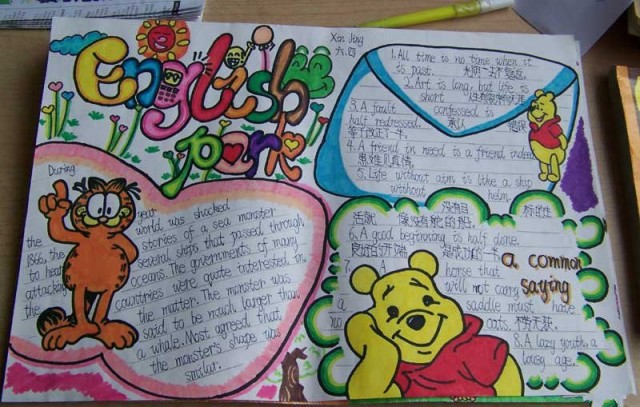 Xan Jing
六.四
English
park
During
the year
1866, the world was shocked
to hear stories of a sea monster
attacking several ships that passed through
the oceans. The governments of many
countries were quite interested in
the matter. The monster was
said to be much larger than
a whale. Most agreed that
the monster's shape was
similar.
1. All time is no time when it
is past.
2. Art is long, but life is
short
3. A fault confessed is
half redressed. 承认 错误
等于改正了一半.
4. A friend in need is a friend indeed
患难见真情.
5. Life without aim is like a ship
without helm
生活 没有目标的
像没有舵的船.
6. A good beginning is half done.
良好的开端 是成功的一半
7. A horse that
will not carry
a saddle must have
no oats. 不劳无获.
8. A lazy youth, a
lousy age.
a common
saying